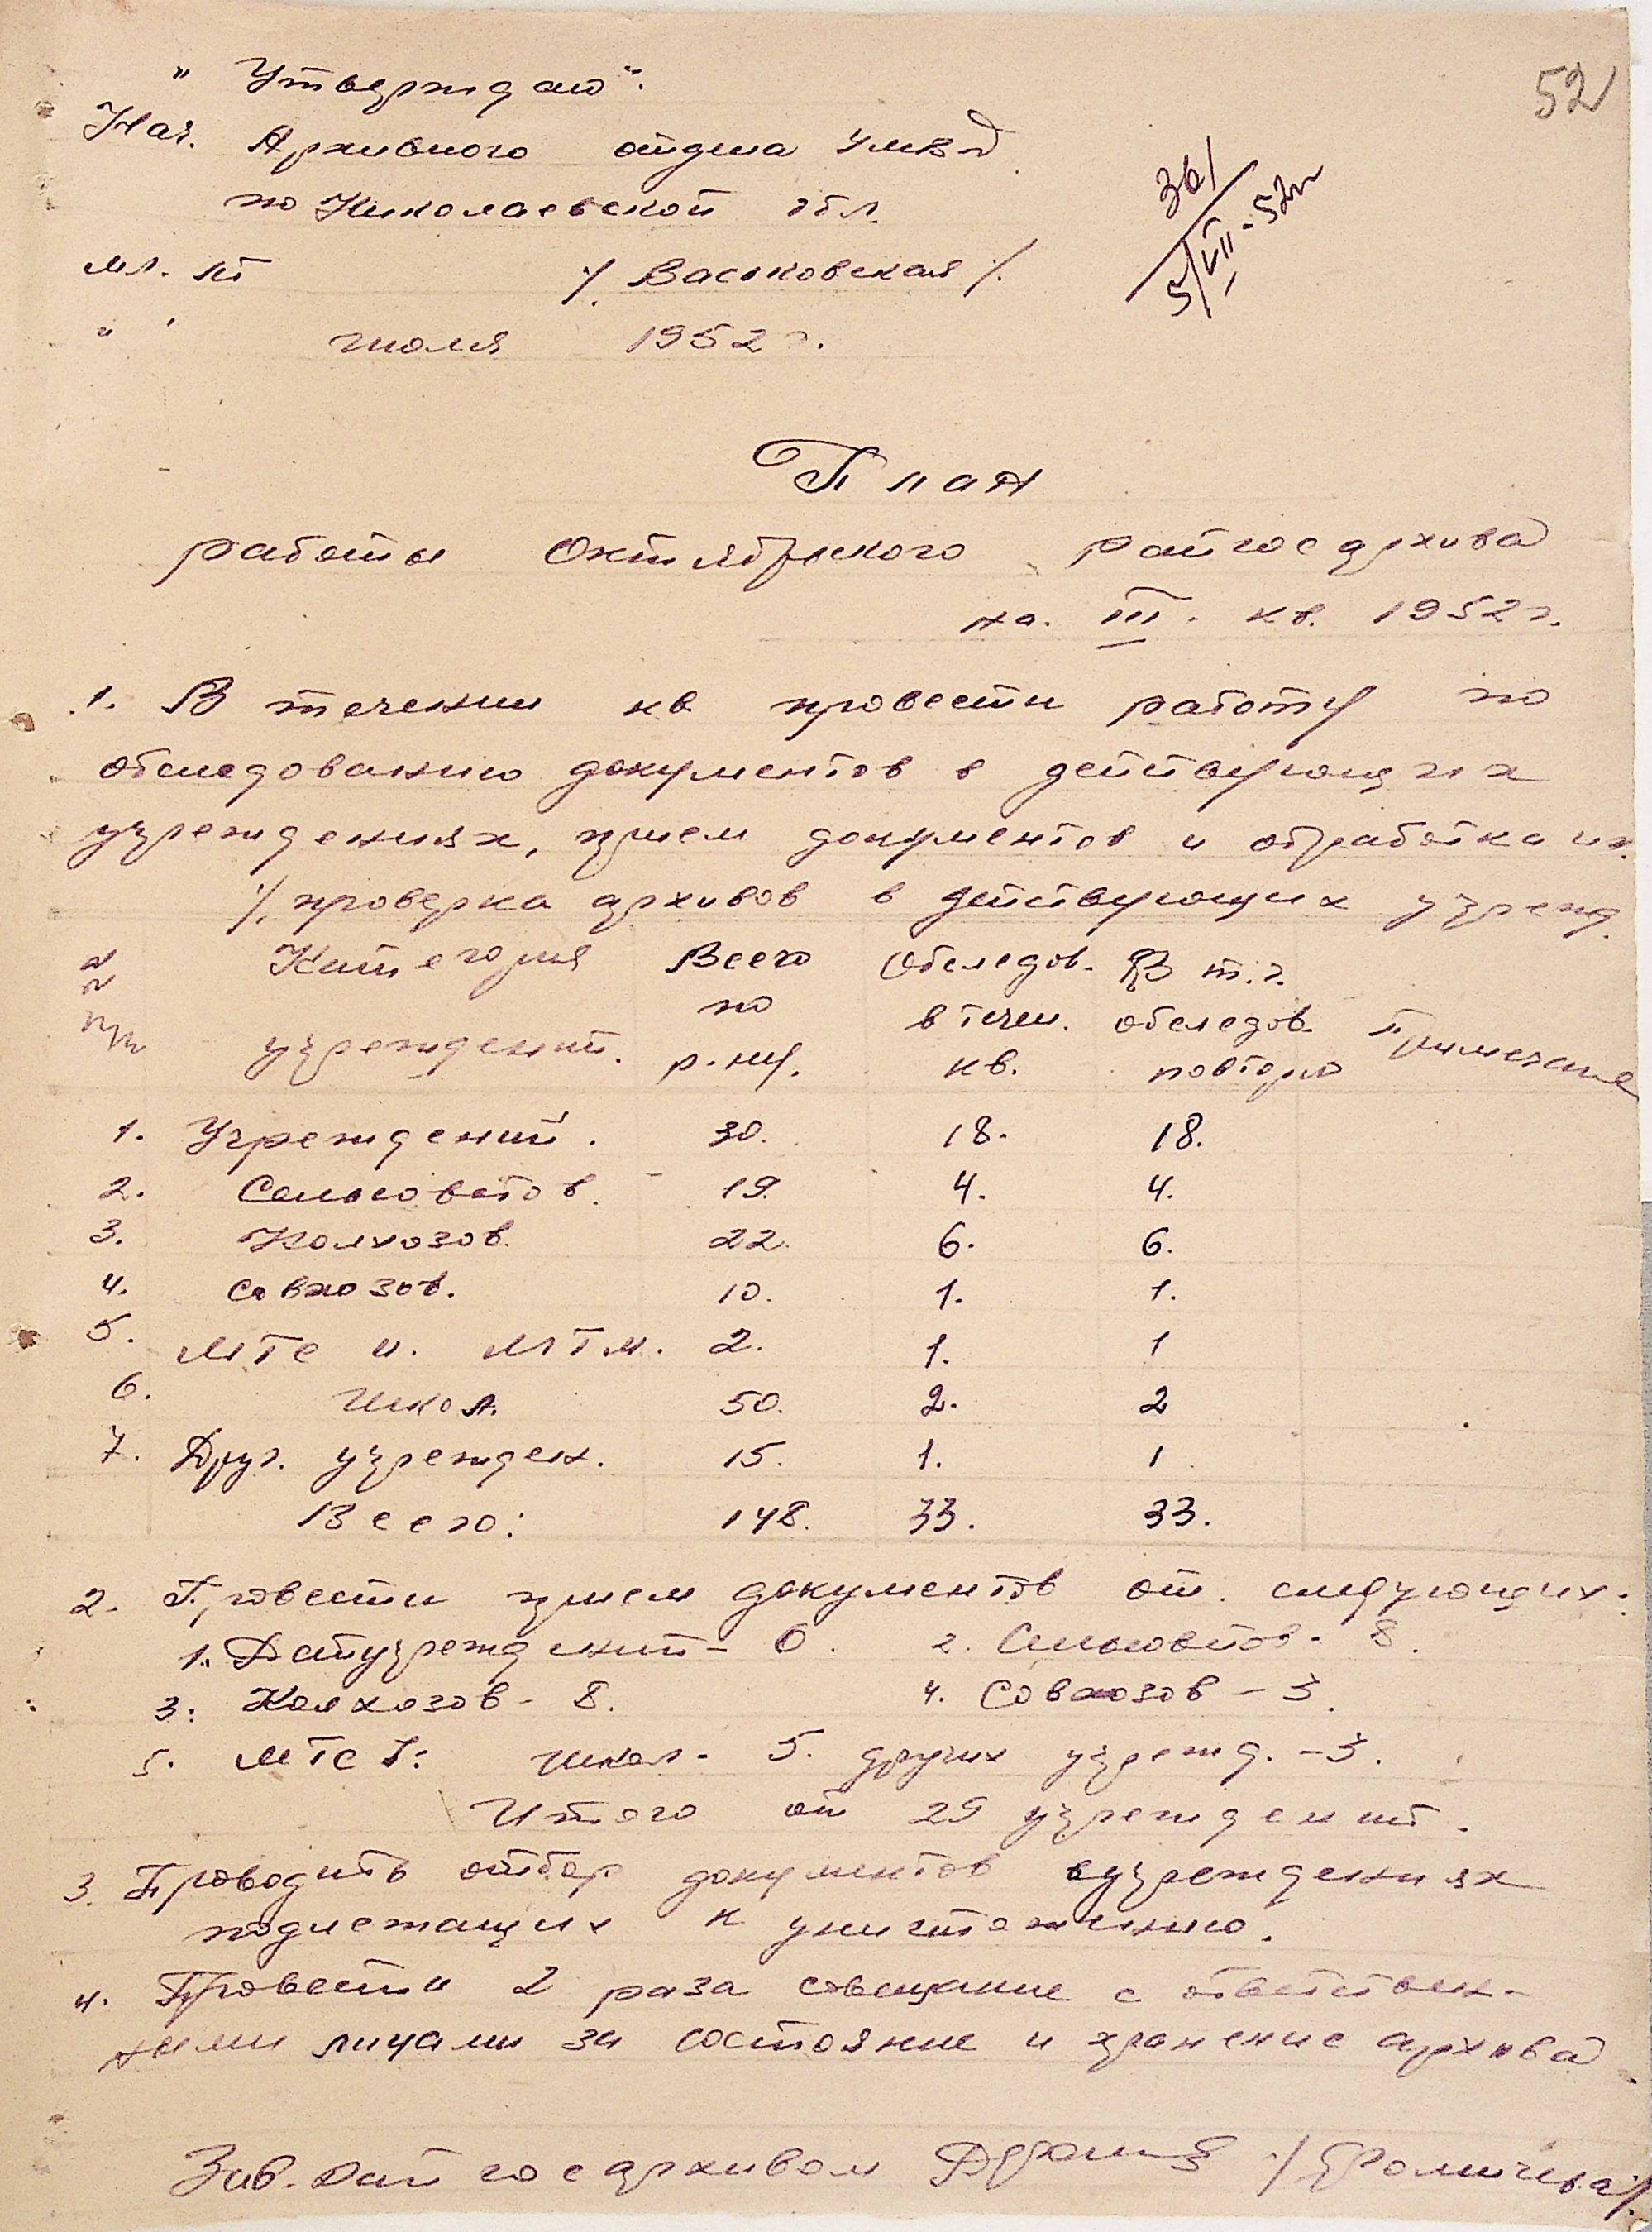 52
" Утверждаю ".
Нач. Архивного отдела УМВД
по Николаевской обл.
мл. лт /. Васьковская /.
" " июля 1952 г.
361
5/VII - 52 г
План
работы Октябрьского райгосархива
на. III. кв. 1952 г.
1. В течении кв провести работу по
обследованию документов в действующих
учреждениях, прием документов и обработка их.
/. проверка архивов в действующих учрежд.
№№ п/п Категория учреждений. Всего по р-ну. Обследов. в течен. кв. В т.ч. обследов. повторно Примечание
1. Учреждений. 30. 18. 18.
2. Сельсоветов. 19. 4. 4.
3. Колхозов. 22. 6. 6.
4. Совхозов. 10. 1. 1.
5. МТС и. МТМ. 2. 1. 1
6. Школ. 50. 2. 2
7. Друг. учрежден. 15. 1. 1
Всего: 148. 33. 33.
2. Провести прием документов от следующих:
1. Райучреждений - 6. 2. Сельсоветов - 8.
3: Колхозов - 8. 4. Совхозов - 3.
5. МТС 1: школ - 5. других учрежд. - 3.
Итого от 29 учреждений.
3. Проводить отбор документов в учреждениях
подлежащих к уничтожению.
4. Провести 2 раза совещание с ответствен-
ными лицами за состояние и хранение архива.
Зав. Райгосархивом /Фомичева/.